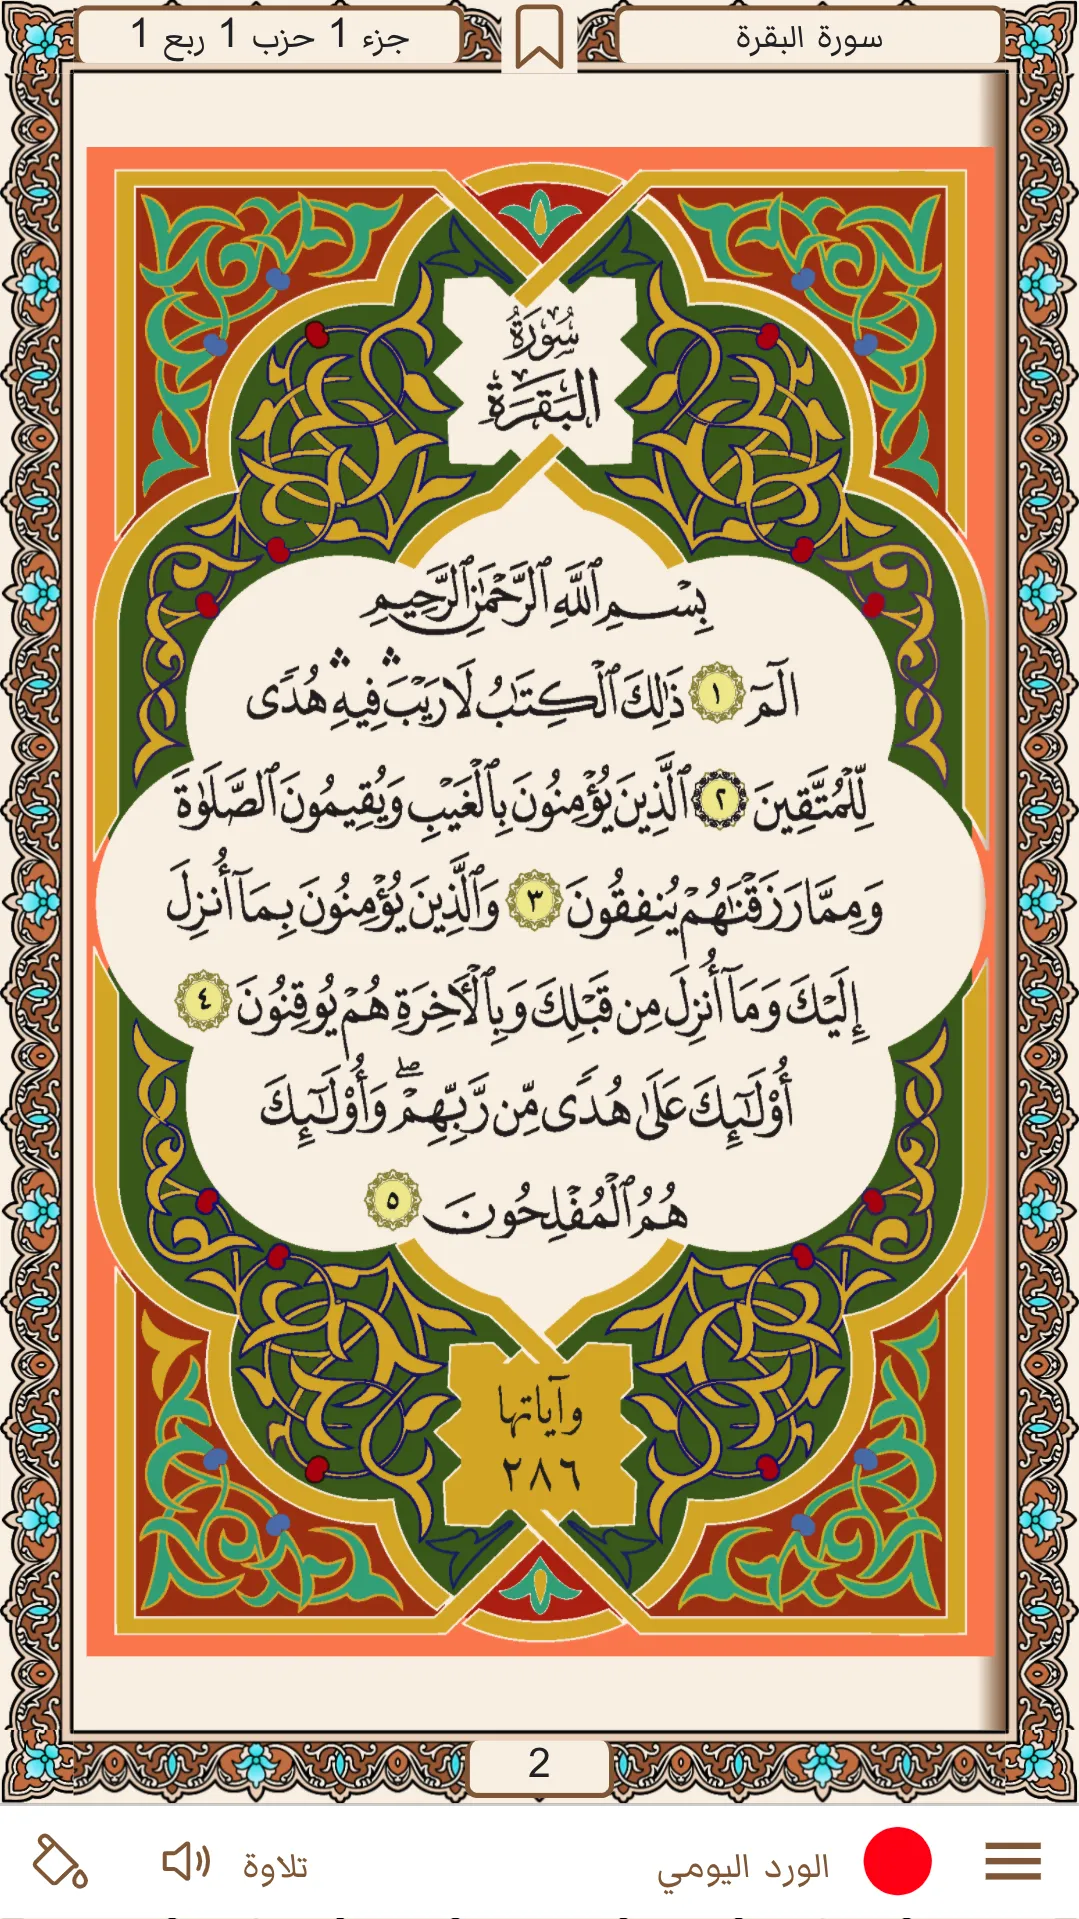 سورة البقرة
جزء 1 حزب 1 ربع 1
سُورَةُ
البَقَرَةِ
بِسْمِ ٱللَّهِ ٱلرَّحْمَٰنِ ٱلرَّحِيمِ
الٓمٓ ١ ذَٰلِكَ ٱلْكِتَٰبُ لَا رَيْبَ ۛ فِيهِ ۛ هُدًى
لِّلْمُتَّقِينَ ٢ ٱلَّذِينَ يُؤْمِنُونَ بِٱلْغَيْبِ وَيُقِيمُونَ ٱلصَّلَوٰةَ
وَمِمَّا رَزَقْنَٰهُمْ يُنفِقُونَ ٣ وَٱلَّذِينَ يُؤْمِنُونَ بِمَآ أُنزِلَ
إِلَيْكَ وَمَآ أُنزِلَ مِن قَبْلِكَ وَبِٱلْأَخِرَةِ هُمْ يُوقِنُونَ ٤
أُو۟لَٰٓئِكَ عَلَىٰ هُدًى مِّن رَّبِّهِمْ ۖ وَأُو۟لَٰٓئِكَ
هُمُ ٱلْمُفْلِحُونَ ٥
وآياتها
٢٨٦
2
الورد اليومي
تلاوة